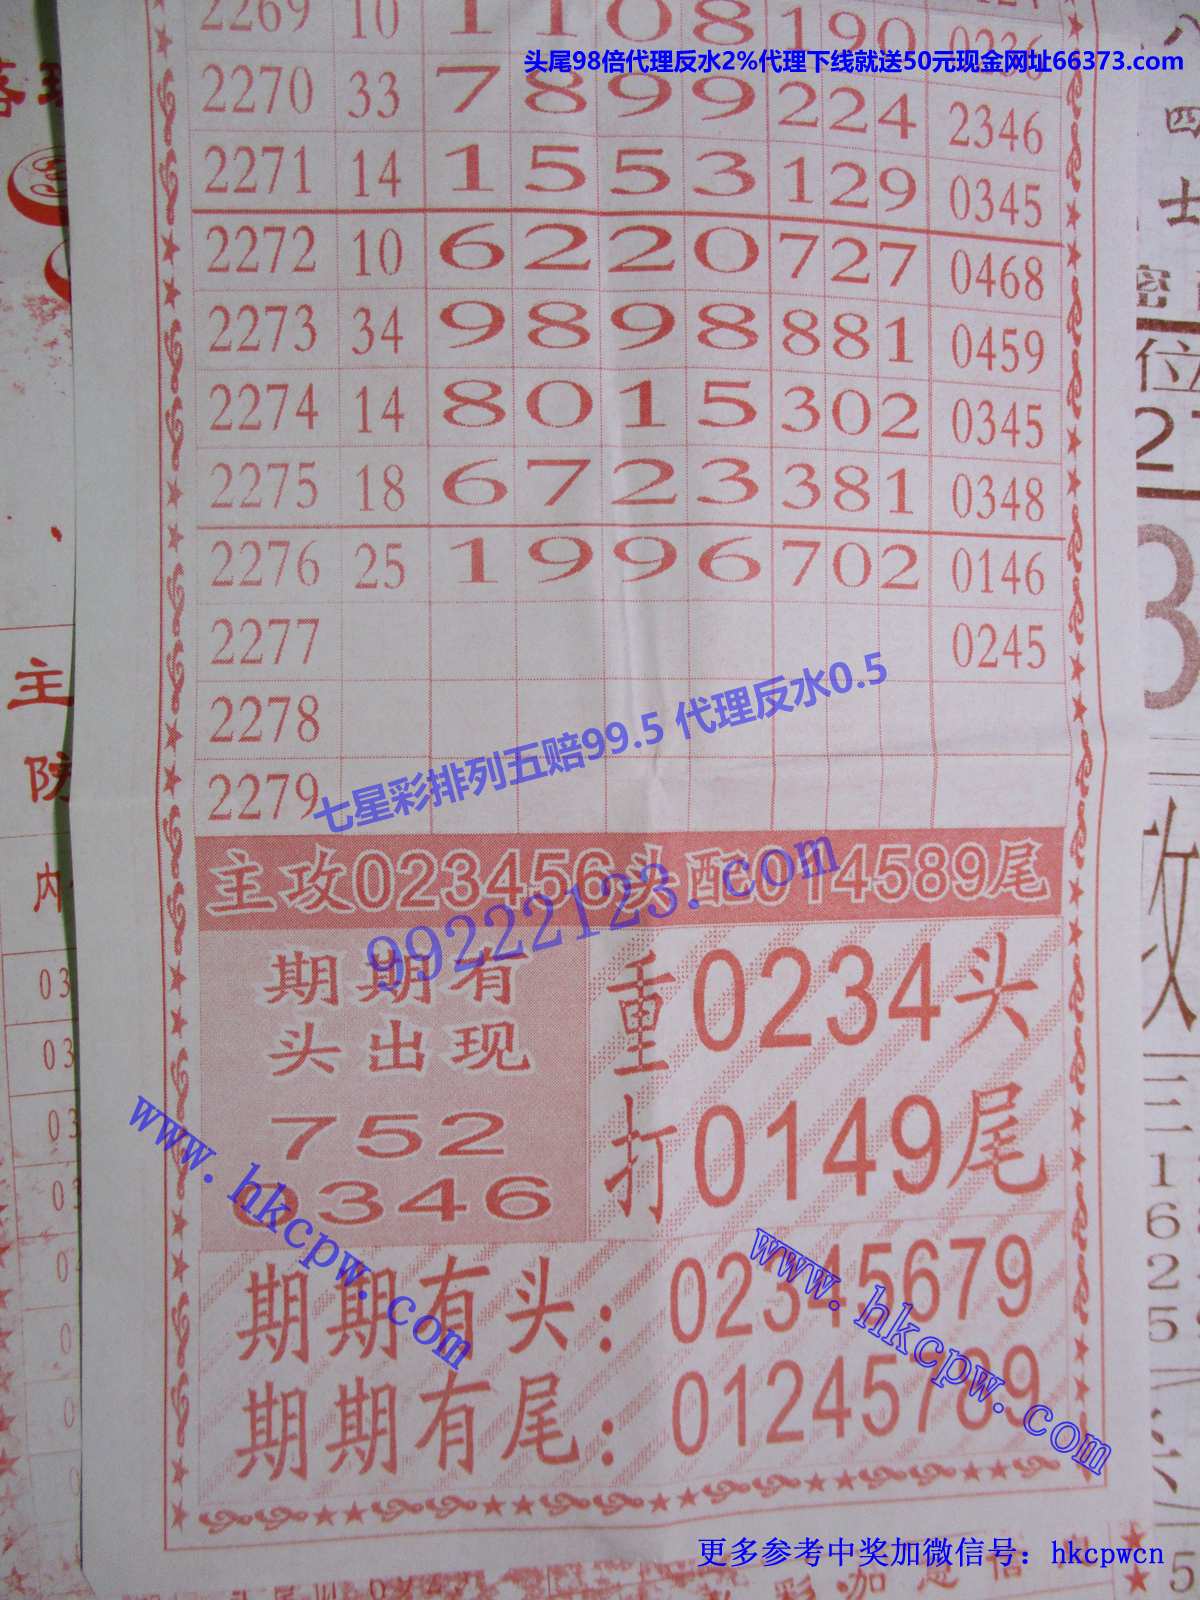 2269 10 1108 190 0236
头尾98倍代理反水2%代理下线就送50元现金网址66373.com
2270 33 7899 224 2346
2271 14 1553 129 0345
2272 10 6220 727 0468
2273 34 9898 881 0459
2274 14 8015 302 0345
2275 18 6723 381 0348
2276 25 1996 702 0146
2277 0245
2278
2279
七星彩排列五赔99.5 代理反水0.5
主攻023456头配014589尾
99222123.com
期期有
头出现
752
0346
重打
0234头
0149尾
www.hkcpw.com
期期有头：02345679
期期有尾：01245789
www.hkcpw.com
更多参考中奖加微信号：hkcpwcn
八
四
士
密
位
2
3
攻
三
1
6
2
5
5
主
防
内
03
03
03
03